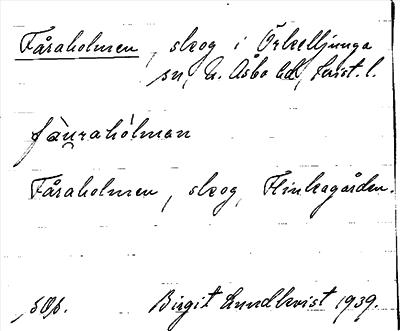 Fåraholmen, skog i Örkelljunga
sn, N. Åsbo hd, Krist. l.
fàu̯rahólmen
Fåraholmen, skog, Flinkagården.
sOp. Birgit Lundkvist 1939.